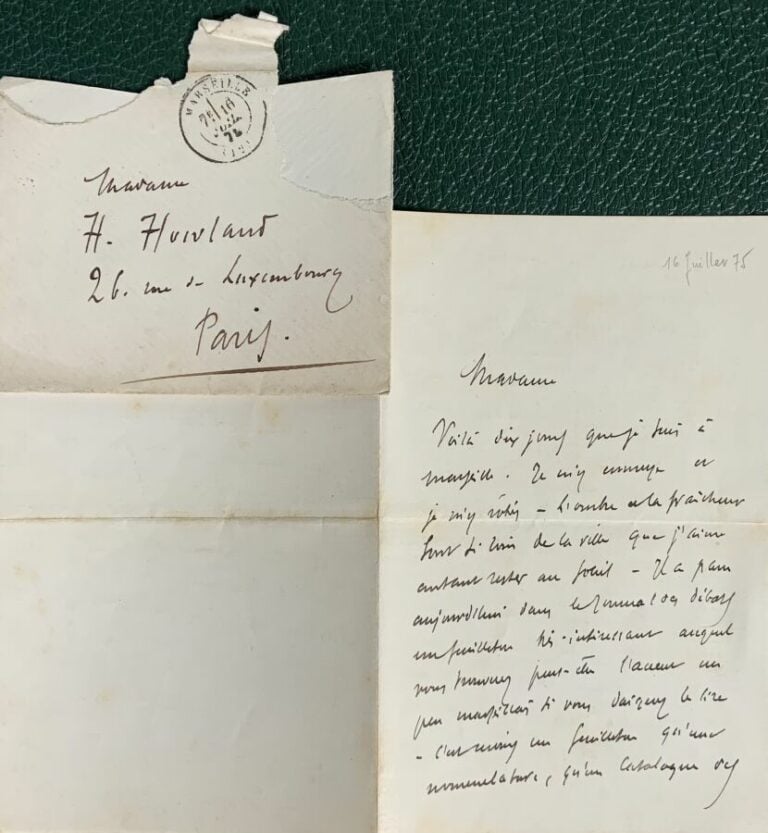 MARSEILLE
16
JUIL
75
Madame
H. Howland
26. rue de Luxembourg
Paris.
16 Juillet 75
Madame
Voilà dix jours que je suis à
Marseille. Je m'y ennuye et
je m'y rôtis – L'ombre et la fraîcheur
sont si loin de la ville que j'aime
autant rester au soleil – Il a paru
aujourd'hui dans le Journal des débats
un feuilleton très-intéressant auquel
vous trouverez peut-être l'accent un
peu marseillais si vous daignez le lire
– c'est moins un feuilleton qu'une
nomenclature, qu'un catalogue des